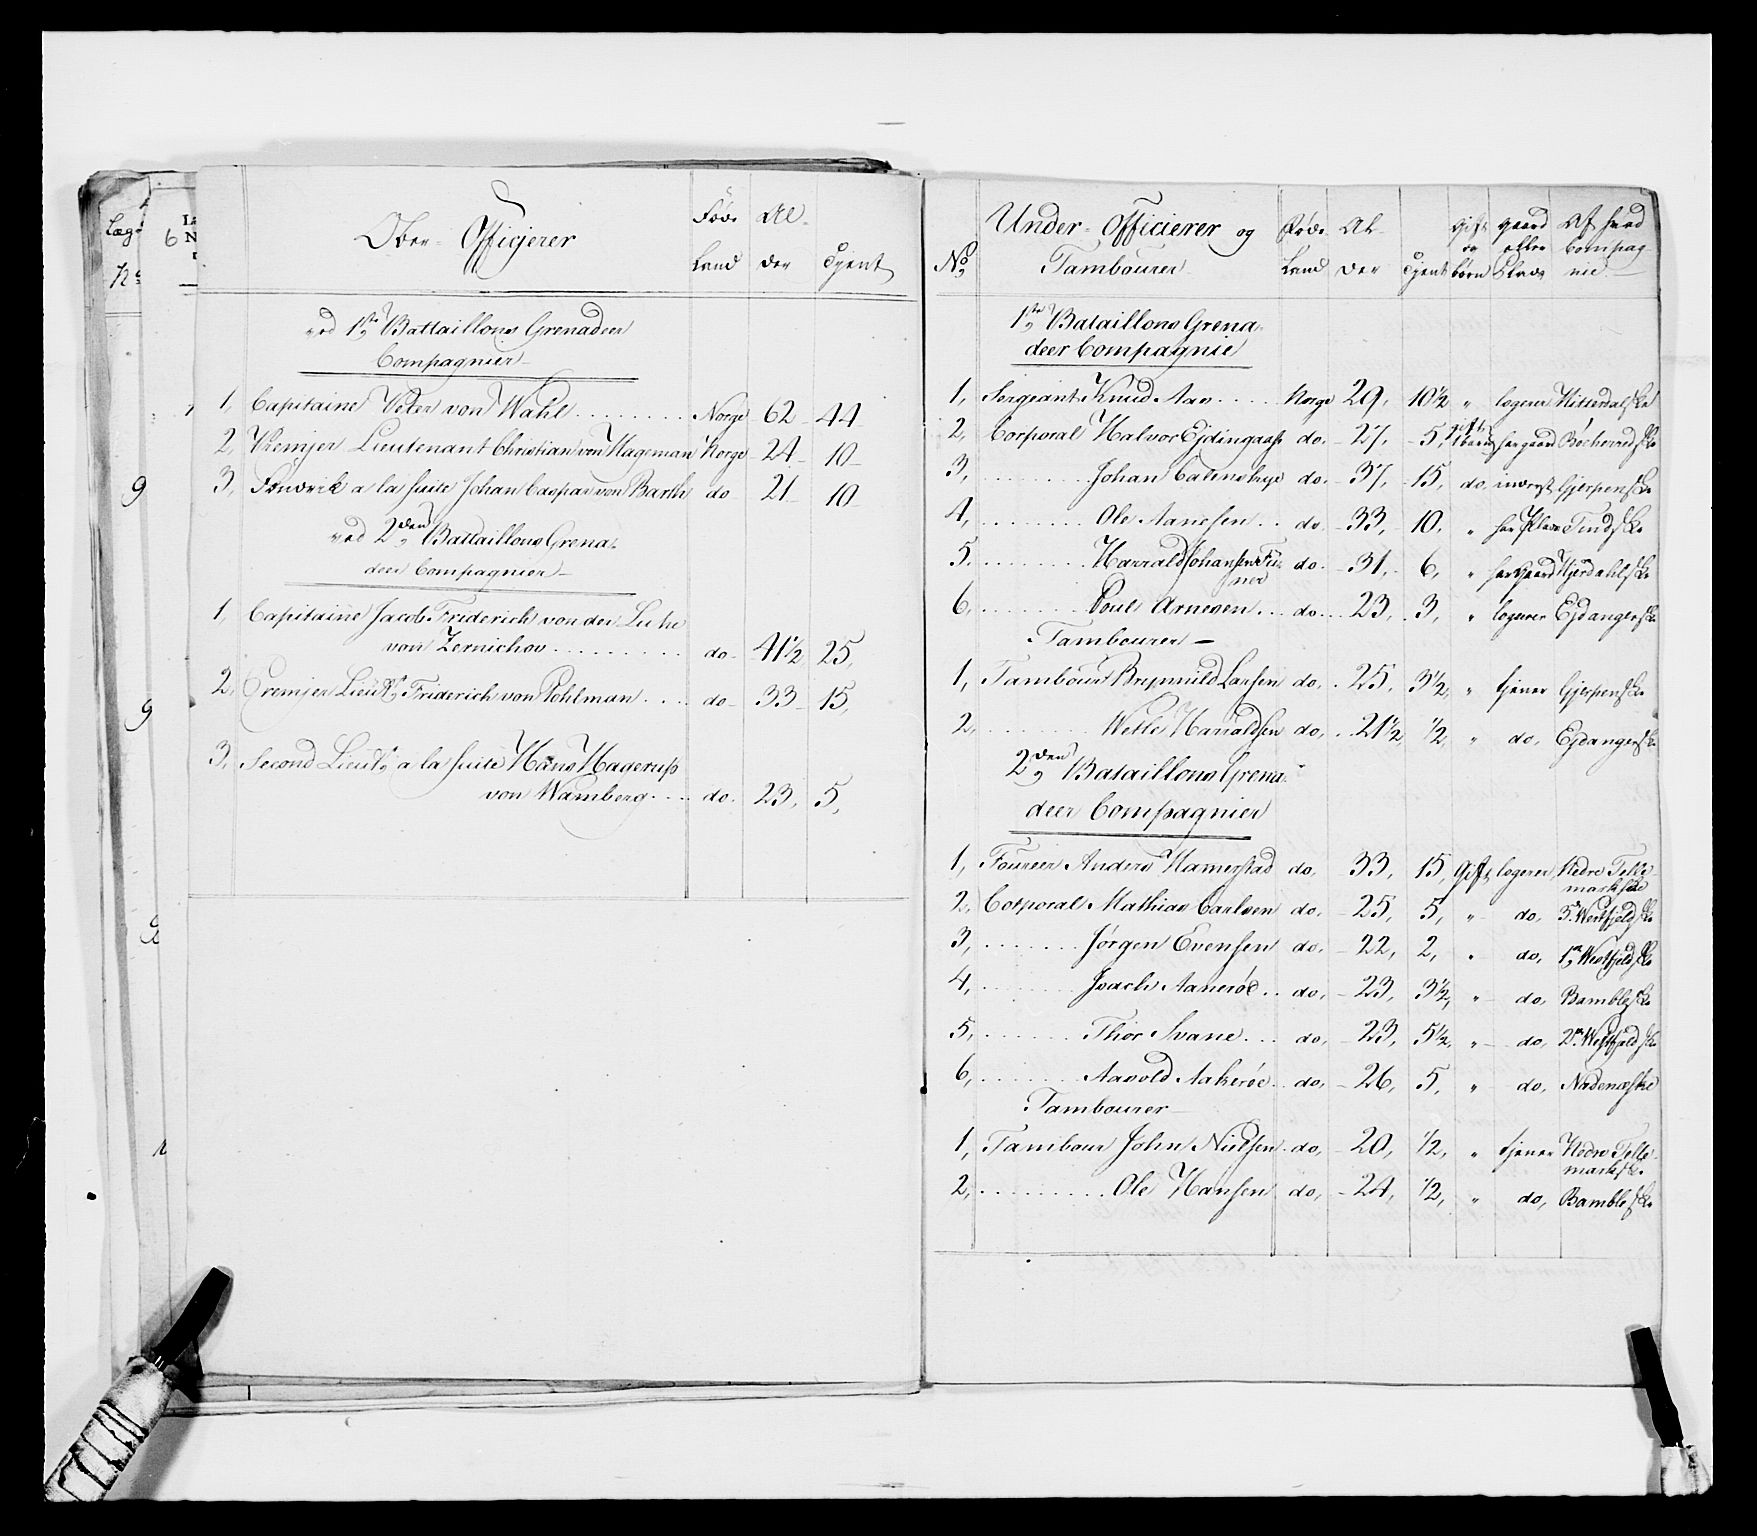 Læg
No
6
9
9
Ober- Officjerer
Føde Land
Al der
Tjent
ved 1ste Battaillons Grenadeer
Compagnier
1, Capitaine Peter von Wahl . . . . . Norge 62 44
2, Premjer Lieutenant Christian von Hageman Norge 24 10
3, Fendrik a la suite Johan Caspar von Barth do 21 10
ved 2den Battaillons Grena-
deer Compagnier
1, Capitaine Jacob Friderich von der Luhe
von Zernichov . . . . . do 41½ 25,
2, Premjer Lieut. Friderich von Pohlman . . . do 33 15,
3, Second Lieut. a la suite Hans Hagerup
von Wamberg . . . do. 23, 5,
No
Under- Officierer og
Tambourer
Føde Land
Al- der
Tjent
Gift og børn
gaard eller Plads
Af hvad Compag- nie
1ste Bataillons Grena-
deer Compagnie
1, Sergeant Knud Aas . . . . Norge 29, 10½ " logerer Hitterdalske
2, Corporal Halvor Ejdingaas do. 27, 5, har gaard Bøeherredske
3, . . . . Johan do. 37, 15, do, Gjerpenske
4, . . . . Ole Aanesen . . do. 33, 10, " har Plads Tindske
5. . . . . Harrald Johansen
do. 31, 6, " har gaard Hjerdahlske
6, . . . . Poul Arnesen . . . do. 23, 3, " logerer Ejdangerske
Tambourer
1, Tambour Brynnild Larsen do, 25, 3½, " tjener Gjerpenske
2, . . . . Wetle Haraldsen do, 21½ ½, " do, Ejdangerske
2den Bataillons Grena-
deer Compagnier
1, Foureer Anders Hamerstad do, 33, 15, Gift logerer, Nedre Telle-
markske
2, Corporal Mathias Carlsen do, 25, 5, " do, 3. Westfjeldske
3, . . . . Jørgen Evensen do, 22, 2, " do, 1ste Westfjeldske
4, . . . . Isach Aanerøe . . do, 23, 3½, " do, Bambleske
5, . . . . Thor Svane . . . do, 23, 5½, " do, 2. Westfjeldske
6, . . . . Aavold Aakerøe . do, 26, 5, " do, Nedenæske
Tambourer
1, Tambour John Nielsen . do, 20, ½, " tjener Nedre Telle-
markske
2, . . . . Ole Hansen do, 24, ½, " do, Bambleske